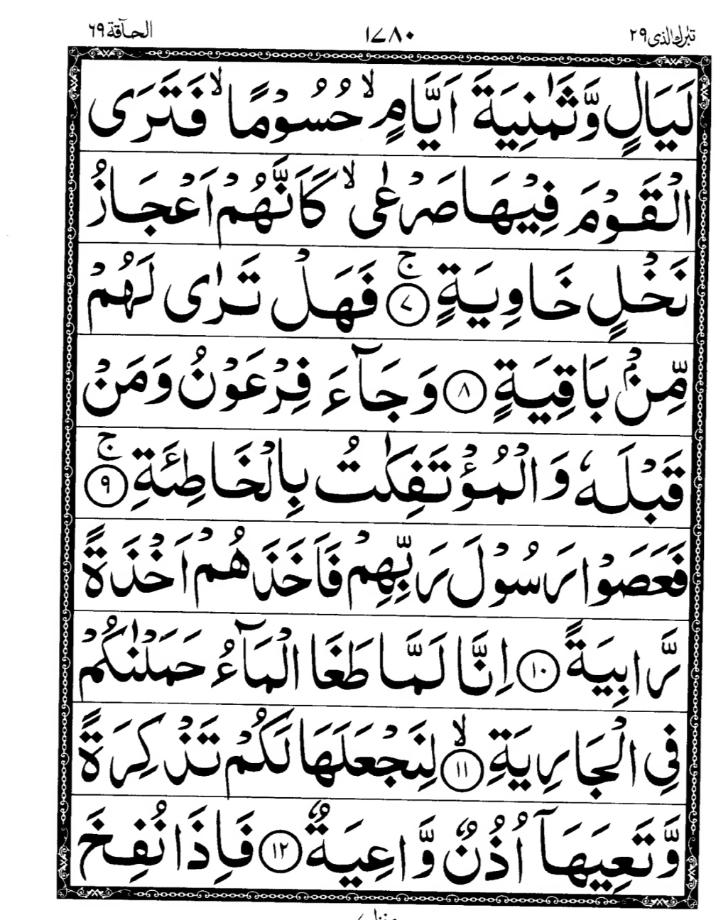 تبٰرك الذی ٢٩ ١٧٨٠ الحاقة ٦٩
لَيَالٍ وَّثَمٰنِيَةَ اَيَّامٍ ۙ حُسُوْمًا ۙ فَتَرَى
الْقَوْمَ فِيْهَا صَرْعٰى ۙ كَاَنَّهُمْ اَعْجَازُ
نَخْلٍ خَاوِيَةٍ ۚ ﴿٧﴾ فَهَلْ تَرٰى لَهُمْ
مِّنْۢ بَاقِيَةٍ ﴿٨﴾ وَجَآءَ فِرْعَوْنُ وَمَنْ
قَبْلَهٗ وَالْمُؤْتَفِكٰتُ بِالْخَاطِئَةِ ۚ ﴿٩﴾
فَعَصَوْا رَسُوْلَ رَبِّهِمْ فَاَخَذَهُمْ اَخْذَةً
رَّابِيَةً ﴿١٠﴾ اِنَّا لَمَّا طَغَا الْمَآءُ حَمَلْنٰكُمْ
فِي الْجَارِيَةِ ۙ ﴿١١﴾ لِنَجْعَلَهَا لَكُمْ تَذْكِرَةً
وَّتَعِيَهَآ اُذُنٌ وَّاعِيَةٌ ﴿١٢﴾ فَاِذَا نُفِخَ
منزل ٧